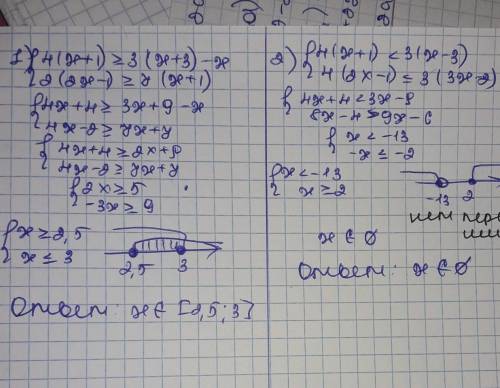 1) { 4(x+1) ≥ 3(x+3) - x
2(2x-1) ≥ 7(x+1)
{ 4x+4 ≥ 3x+9-x
4x-2 ≥ 7x+7
{ 4x+4 ≥ 2x+9
4x-2 ≥ 7x+7
{ 2x ≥ 5
-3x ≥ 9
{ x ≥ 2,5
x ≤ 3
2,5 3
Ответ: x ∈ [2,5; 3]
2) { 4(x+1) < 3(x-3)
4(2x-1) ≤ 3(3x-2)
{ 4x+4 < 3x-9
8x-4 ≤ 9x-6
{ x < -13
-x ≤ -2
{ x < -13
x ≥ 2
-13 2
нет
x ∈ ∅
Ответ: x ∈ ∅